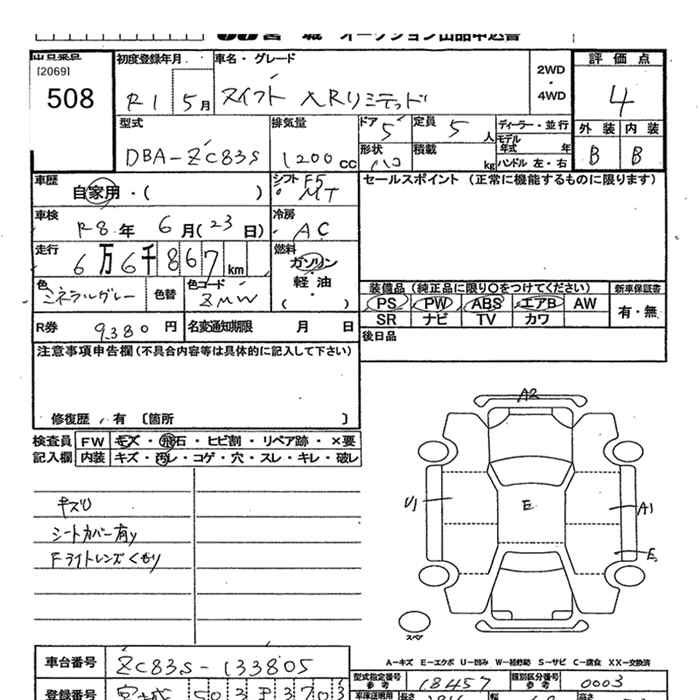 宮 城 オークション出品申込書
出品番号
[2069]
508
初度登録年月
R1 5月
車名・グレード
スイフト XRリミテッド
2WD
・
4WD
評価点
4
外装 内装
B B
型式
DBA-ZC83S
排気量
1200cc
ドア 5
定員 5人
形状 ハコ
積載 kg
ディーラー・並行
モデル年式 年
ハンドル 左・右
車歴
自家用・( )
シフト F5
MT
車検
R8年 6月(23日)
冷房
AC
走行
6万6千867km
燃料
ガソリン
軽油
・
( )
色
ミネラルグレー
色替
色コード
ZMW
R券 9380円
名変通知期限 月 日
セールスポイント (正常に機能するものに限ります)
装備品(純正品に限り○をつけてください)
新車保証書
PS PW ABS エアB AW
SR ナビ TV カワ
有・無
後日品
注意事項申告欄(不具合内容等は具体的に記入して下さい)
修復歴 . 有 〔箇所 〕
検査員 FW キズ・飛石・ヒビ割・リペア跡・×要
記入欄 内装 キズ・汚レ・コゲ・穴・スレ・キレ・破レ
キズU
シートカバー有り
Fライトレンズくもり
A2
U1
E
A1
E
スペア
A-キズ E-エクボ U-凹み W-補修跡 S-サビ C-腐食 XX-交換済
車台番号 ZC83S-133805
型式指定番号
参考
18457
類別区分番号
参考
0003
登録番号 宮城 503
車庫証明用 長さ
幅
高さ